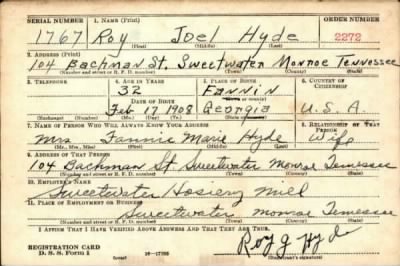 SERIAL NUMBER 1. NAME (Print) ORDER NUMBER
1767 Roy Joel Hyde 2272
(First) (Middle) (Last)
2. ADDRESS (Print)
104 Bachman St. Sweetwater Monroe Tennessee
(Number and street or R. F. D. number) (Town) (County) (State)
3. TELEPHONE 4. AGE IN YEARS 5. PLACE OF BIRTH 6. COUNTRY OF CITIZENSHIP
32 Fannin
(Town or county)
DATE OF BIRTH
Feb 17 1908 Georgia U.S.A.
(Exchange) (No.) (Mo.) (Day) (Yr.) (State or country)
7. NAME OF PERSON WHO WILL ALWAYS KNOW YOUR ADDRESS 8. RELATIONSHIP OF THAT PERSON
Mrs Fannie Marie Hyde Wife
(Mr., Mrs., Miss) (First) (Middle) (Last)
9. ADDRESS OF THAT PERSON
104 Bachman St Sweetwater Monroe Tennessee
(Number and street or R. F. D. number) (Town) (County) (State)
10. EMPLOYER'S NAME
Sweetwater Hosiery Mill
11. PLACE OF EMPLOYMENT OR BUSINESS
Sweetwater Monroe Tennessee
(Number and street or R. F. D. number) (Town) (County) (State)
I AFFIRM THAT I HAVE VERIFIED ABOVE ANSWERS AND THAT THEY ARE TRUE.
REGISTRATION CARD
D. S. S. Form 1
(over)
Roy J Hyde